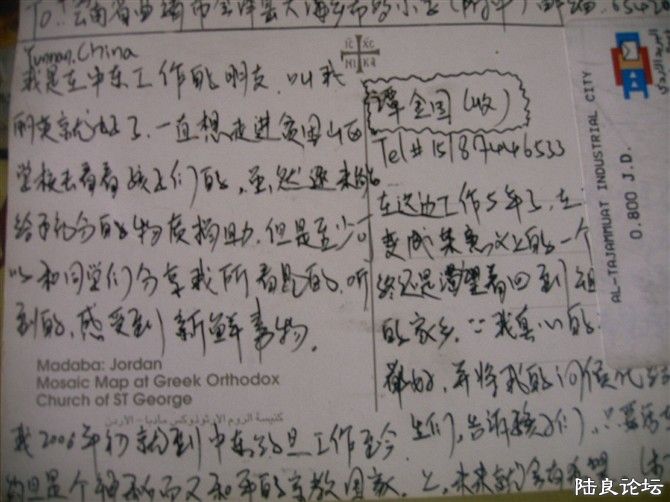 To: 云南省曲靖市会泽县大海乡
Yunnan, China
IC XC
NI KA
我是在中东工作的朋友,叫我
丽英就好了,一直想走进贫困山区
学校去看看孩子们的,虽然
给予的物质
但是至少可
以和同学们分享我所看见的,听
到的,感受到新鲜事物.
Madaba: Jordan
Mosaic Map at Greek Orthodox
Church of ST George
كنيسة الروم الارثوذوكس مادبا - الاردن
我2006年初就到中东约旦工作至今
约旦是个神秘而又和平的宗教国家
谭金国(收)
在这边工作5年了,在
变成某意义上的一个
终还是渴望着回到祖
的家乡.
我真心的
都好,并将我的问候
生们,告诉孩子们,只要
未来就会有希望
AL-TAJAMMUAT INDUSTRIAL CITY
0.800 J.D.
陆良论坛